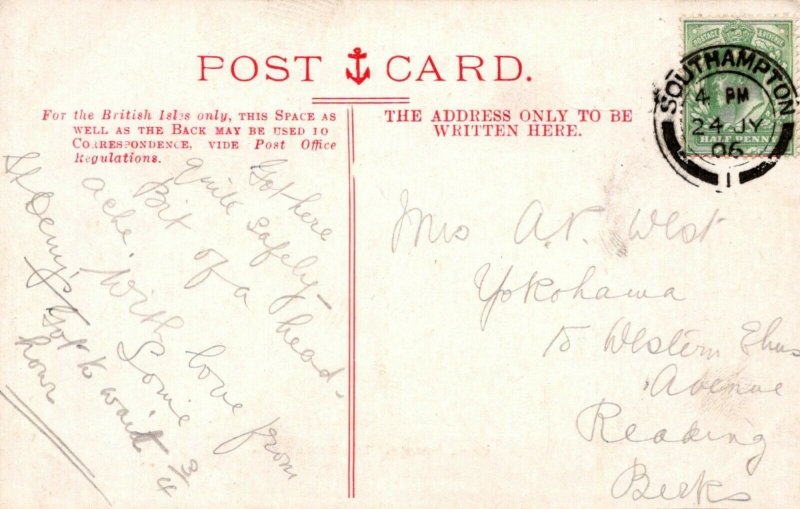 POST CARD.
For the British Isles only, THIS SPACE AS
WELL AS THE BACK MAY BE USED TO
CORRESPONDENCE, VIDE Post Office
Regulations.
THE ADDRESS ONLY TO BE
WRITTEN HERE.
POSTAGE & REVENUE
HALF PENNY
SOUTHAMPTON
4 PM
24 JY
06
1
Got here
quite safely –
Bit of a head-
ache, With love from
St Denys
Got to wait 3/4
hour
Mrs A. West
Yokohama
15 Western Elms
Avenue
Reading
Berks